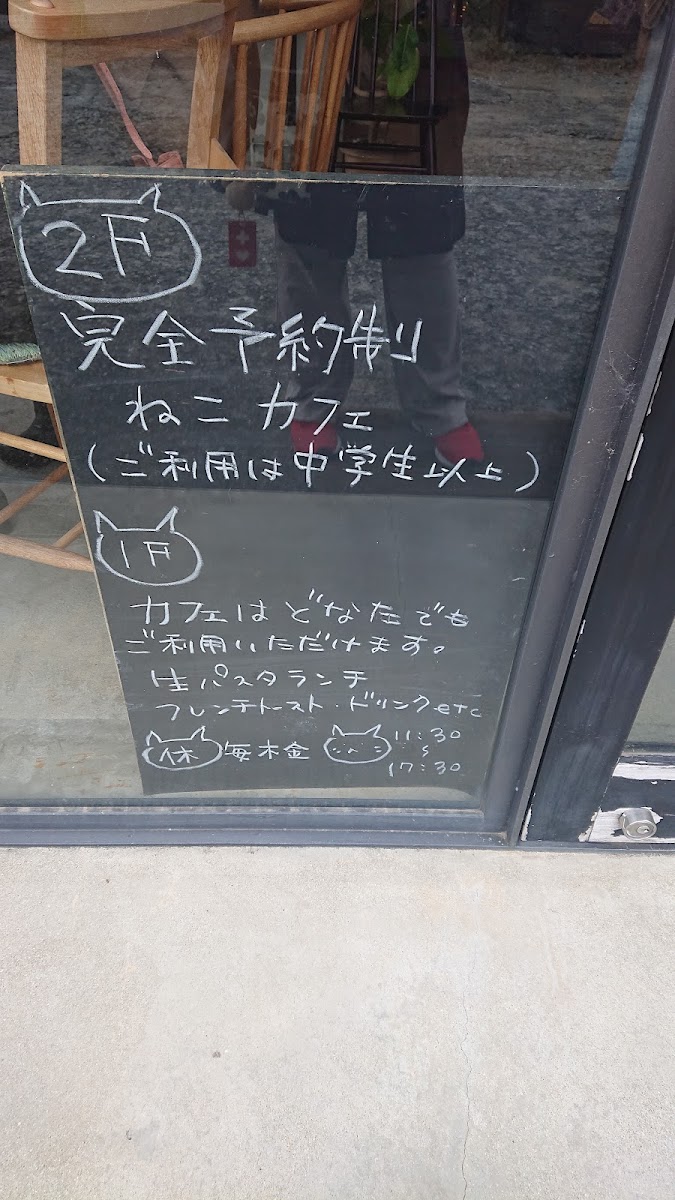 2F
完全予約制
ねこカフェ
(ご利用は中学生以上)
1F
カフェはどなたでも
ご利用いただけます。
生パスタランチ
フレンチトースト・ドリンクetc
休 毎木金 11:30
〜
17:30